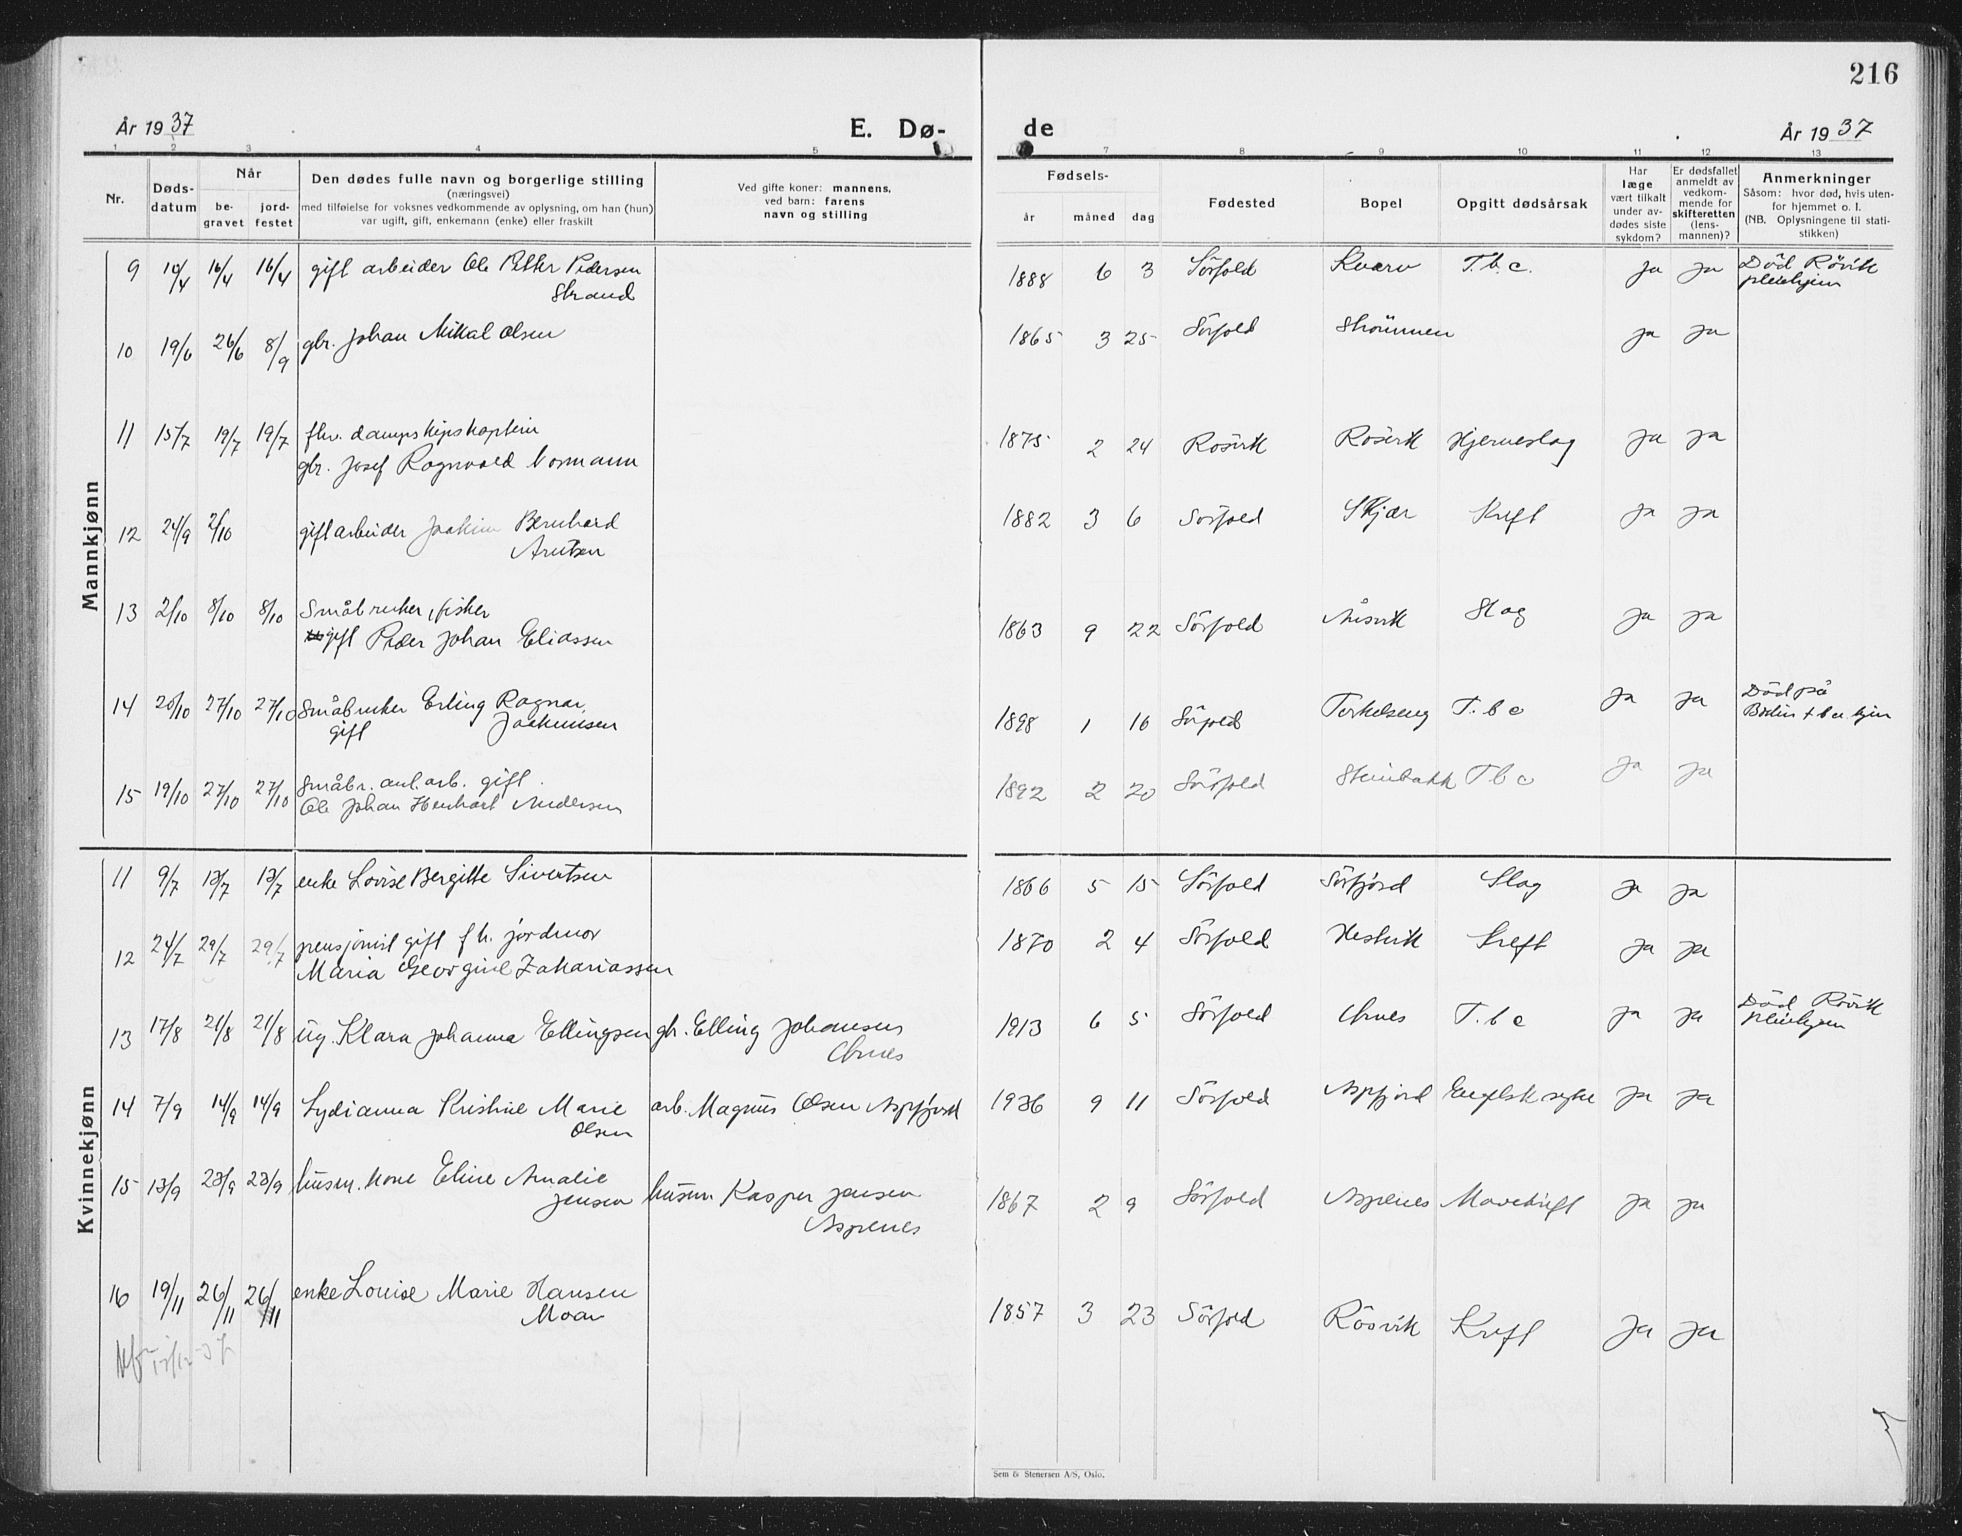 216
År 1937
E. Dø-
de
År 1937
1 2 3 4 5 7 8 9 10 11 12 13
Nr.
Døds-
datum
Når
be-
gravet
jord-
festet
Den dødes fulle navn og borgerlige stilling
(næringsvei)
med tilføielse for voksnes vedkommende av oplysning, om han (hun)
var ugift, gift, enkemann (enke) eller fraskilt
Ved gifte koner: mannens,
ved barn: farens
navn og stilling
Fødsels-
år måned dag
Fødested
Bopel
Opgitt dødsårsak
Har
læge
vært tilkalt
under av-
dødes siste
sykdom?
Er dødsfallet
anmeldt av
vedkom-
mende for
skifteretten
(lens-
mannen)?
Anmerkninger
Såsom: hvor død, hvis uten-
for hjemmet o. l.
(NB. Oplysningene til stati-
stikken)
Mannkjønn
9 10/4 16/4 16/4 gift arbeider Ole Petter Pedersen
Strand
1888 6 3 Sörfold Kvarv T.b.c. ja ja Död Rövik
pleiehjem
10 19/6 26/6 8/9 gbr. Johan Mikal Olsen
1865 3 25 Sörfold Straumen ja ja
11 15/7 19/7 19/7 fhv. dampskipskaptein
gbr. Josef Ragnvald Normann
1875 2 24 Rösvik Rösvik Hjerneslag ja ja
12 24/9 2/10 gift arbeider Joakim Bernhard
Arntsen
1882 3 6 Sörfold Skjær Kreft ja ja
13 2/10 8/10 8/10 Småbruker, fisker
gift Peder Johan Eliassen
1863 9 22 Sörfold Åsvik Slag ja ja
14 20/10 27/10 27/10 Småbruker Erling Ragnar
gift Joakimsen
1898 1 16 Sörfold Torkelseng T.b.c ja ja Död på
Bodin t b c hjem
15 19/10 27/10 27/10 Småbr. anl.arb. gift
Ole Johan Henhart Andersen
1892 2 20 Sörfold Steinbakk T b c ja ja
Kvinnekjønn
11 9/7 13/7 13/7 enke Lovise Bergitte Sivertsen
1866 5 15 Sörfold Sörfjord Slag ja ja
12 24/7 29/7 29/7 pensjonist gift f h. jordmor
Maria Georgine Zakariassen
1870 2 4 Sörfold Hestvik Kreft ja ja
13 17/8 21/8 21/8 ug. Klara Johanna Ellingsen gbr. Elling Johansen
Arnes
1913 6 5 Sörfold Arnes T.b c ja ja Död Rövik
pleiehjem
14 7/9 14/9 14/9 Lydianna Kristine Marie arb. Magnus Olsen Aspfjord
Olsen
1936 9 11 Sörfold Aspfjord Engelsk syke ja ja
15 13/9 23/9 23/9 husm. kone Eline Amalie
Jensen husm. Kasper Jensen
Aspenes
1867 2 9 Sörfold Aspenes Mavekreft ja ja
16 19/11 26/11 26/11 enke Louise Marie Hansen
Moan
1857 3 23 Sörfold Rösvik Kreft ja ja
Sem & Stenersen A/S, Oslo.